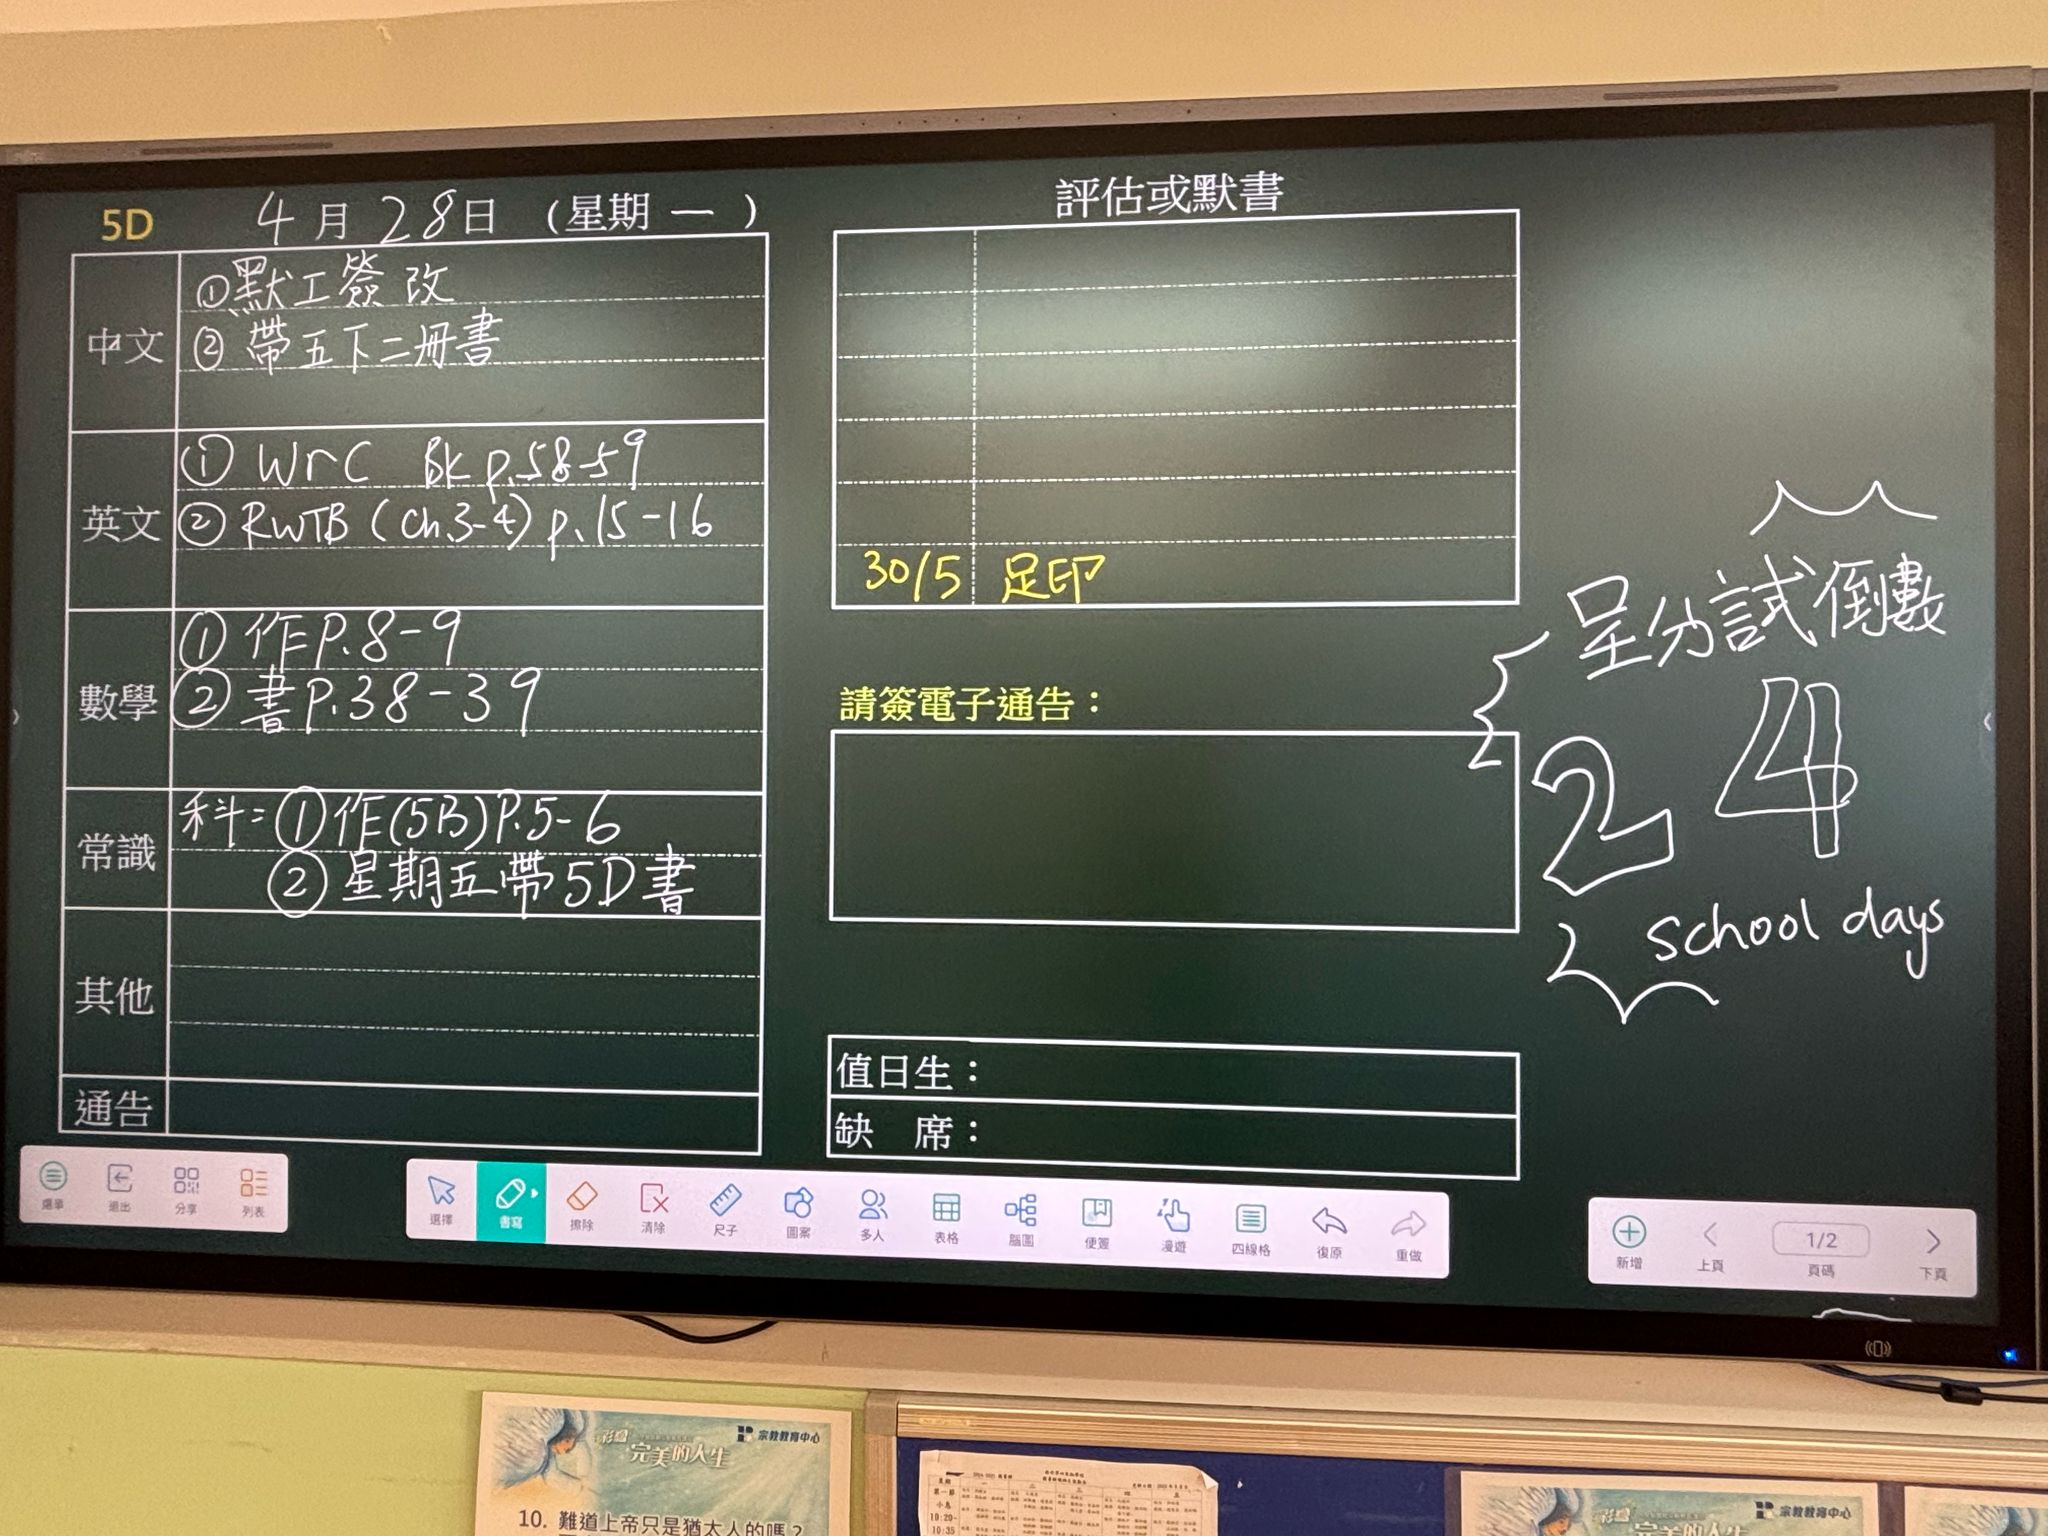 5D 4月28日 (星期一)
中文
①默工簽改
②帶五下二冊書
英文
① WrC BK p.58-59
② RWTB (Ch.3-4) p.15-16
數學
① 作P.8-9
② 書P.38-39
常識
科: ①作(5B)P.5-6
②星期五帶5D書
其他
通告
評估或默書
30/5 足印
請簽電子通告：
值日生：
缺 席：
呈分試倒數
24
school days
選單 退出 分享 列表
選擇 書寫 擦除 清除 尺子 圖案 多人 表格 腦圖 便簽 漫遊 四線格 復原 重做
新增 上頁 1/2 頁碼 下頁
彩繪 完美的人生 宗教教育中心
10. 難道上帝只是猶太人的嗎？
星期
第一節
小息
10:20-
10:35
宗教教育中心
完美的人生